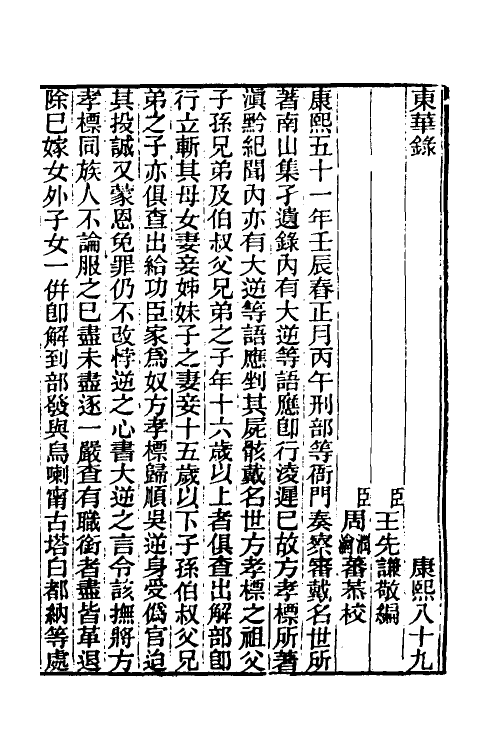 東華錄 康熙八十九
臣王先謙敬編
臣周潤蕃 瀹蕃恭校
康熙五十一年壬辰春正月丙午刑部等衙門奏察審戴名世所
著南山集孑遺錄內有大逆等語應卽行凌遲已故方孝標所著
滇黔紀聞內亦有大逆等語應剉其屍骸戴名世方孝標之祖父
子孫兄弟及伯叔父兄弟之子年十六歲以上者俱查出解部卽
行立斬其母女妻妾姊妹子之妻妾十五歲以下子孫伯叔父兄
弟之子亦俱查出給功臣家爲奴方孝標歸順吳逆身受僞官迨
其投誠又蒙恩免罪仍不改悖逆之心書大逆之言令該撫將方
孝標同族人不論服之已盡未盡逐一嚴查有職銜者盡皆革退
除已嫁女外子女一倂卽解到部發與烏喇甯古塔白都納等處